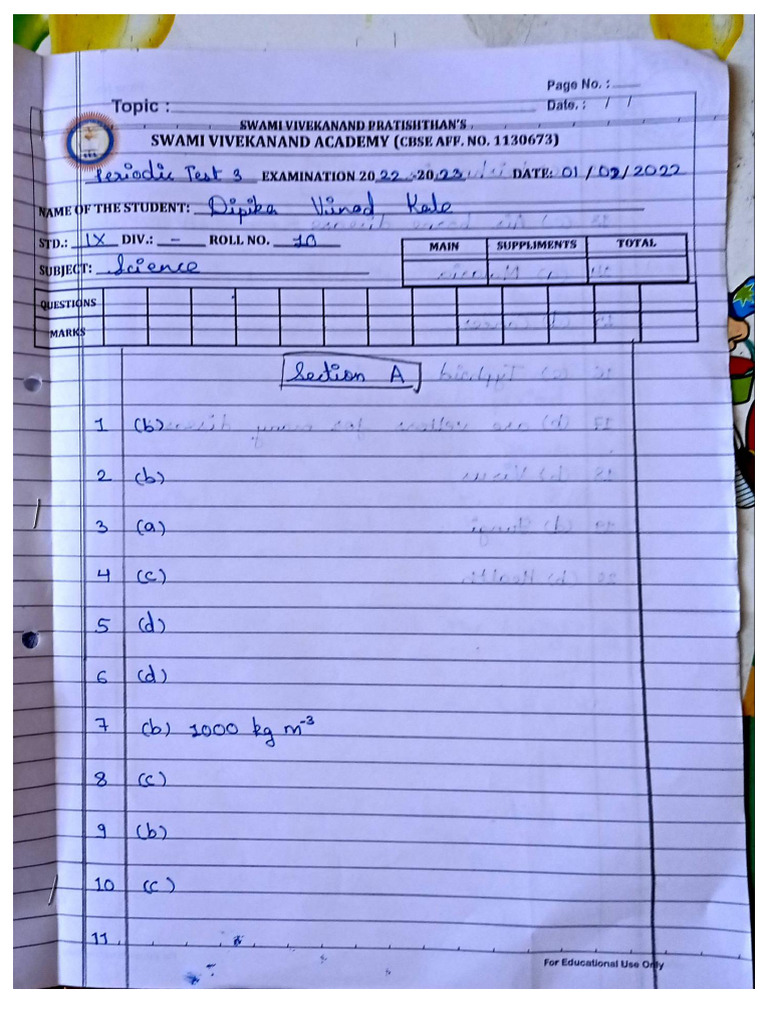 Page No. :
Topic :
Date. : / /
SWAMI VIVEKANAND PRATISHTHAN'S
SWAMI VIVEKANAND ACADEMY (CBSE AFF. NO. 1130673)
Periodic Test 3 EXAMINATION 2022 -2023 DATE: 01/02/2022
NAME OF THE STUDENT: Dipika Vinod Kale
STD.: IX DIV.: - ROLL NO. 10
MAIN SUPPLIMENTS TOTAL
SUBJECT: Science
QUESTIONS
MARKS
Section A
1 (b)
2 (b)
3 (a)
4 (c)
5 (d)
6 (d)
7 (b) 1000 kg m⁻³
8 (c)
9 (b)
10 (c)
11
For Educational Use Only